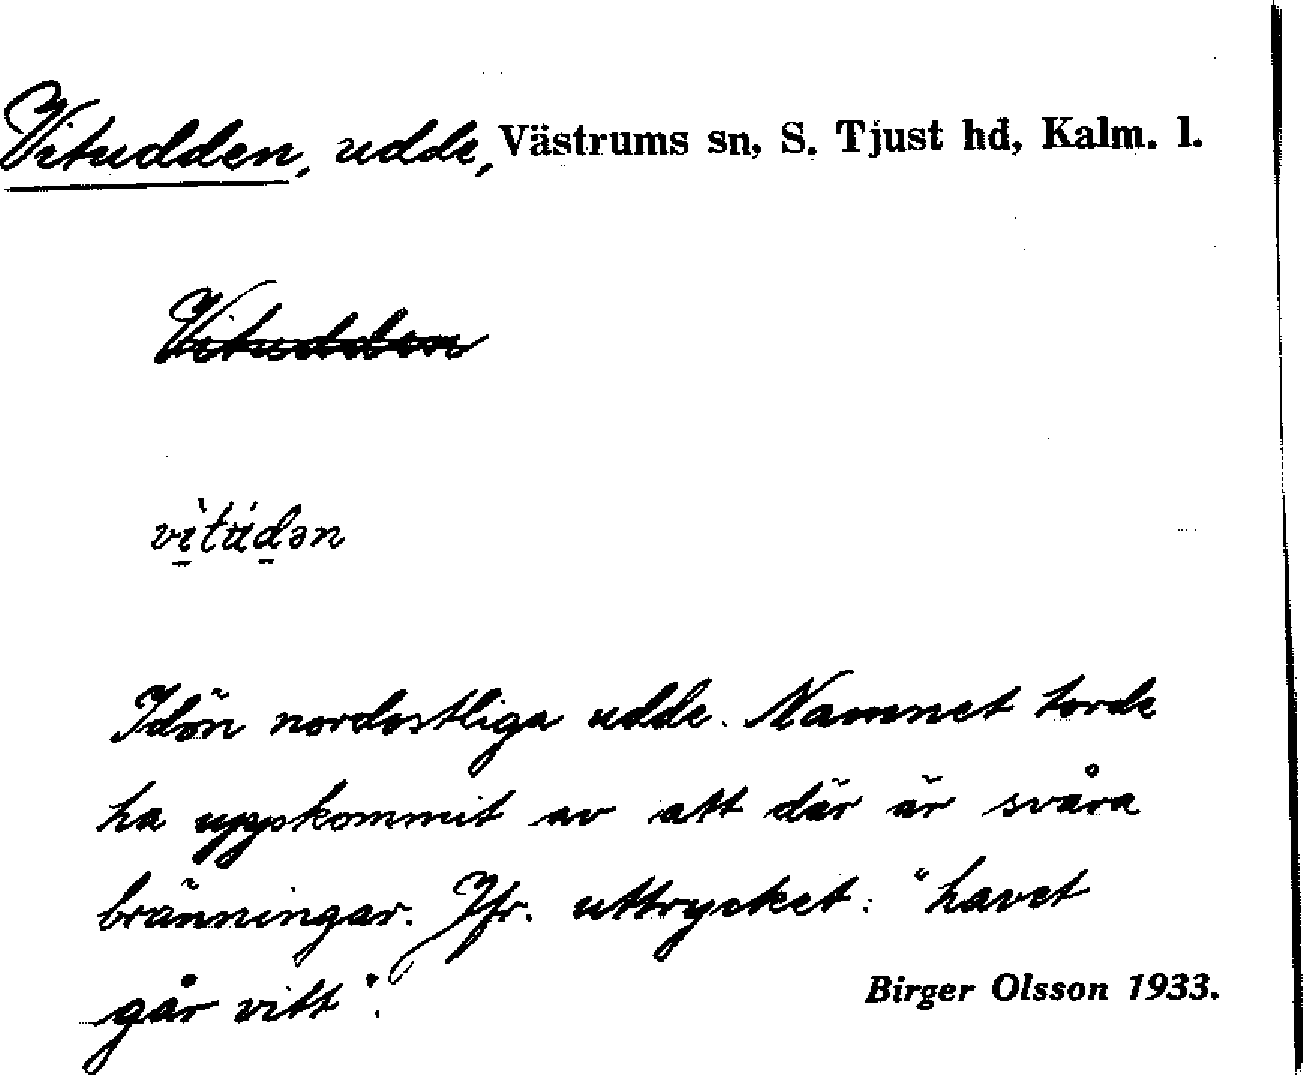 Vitudden, udde, Västrums sn, S. Tjust hd, Kalm. l.
Vitudden
vìtúdən
Idön nordostliga udde. Namnet torde
ha uppkommit av att där är svåra
bränningar. Jfr. uttrycket: "havet
går vitt".
Birger Olsson 1933.